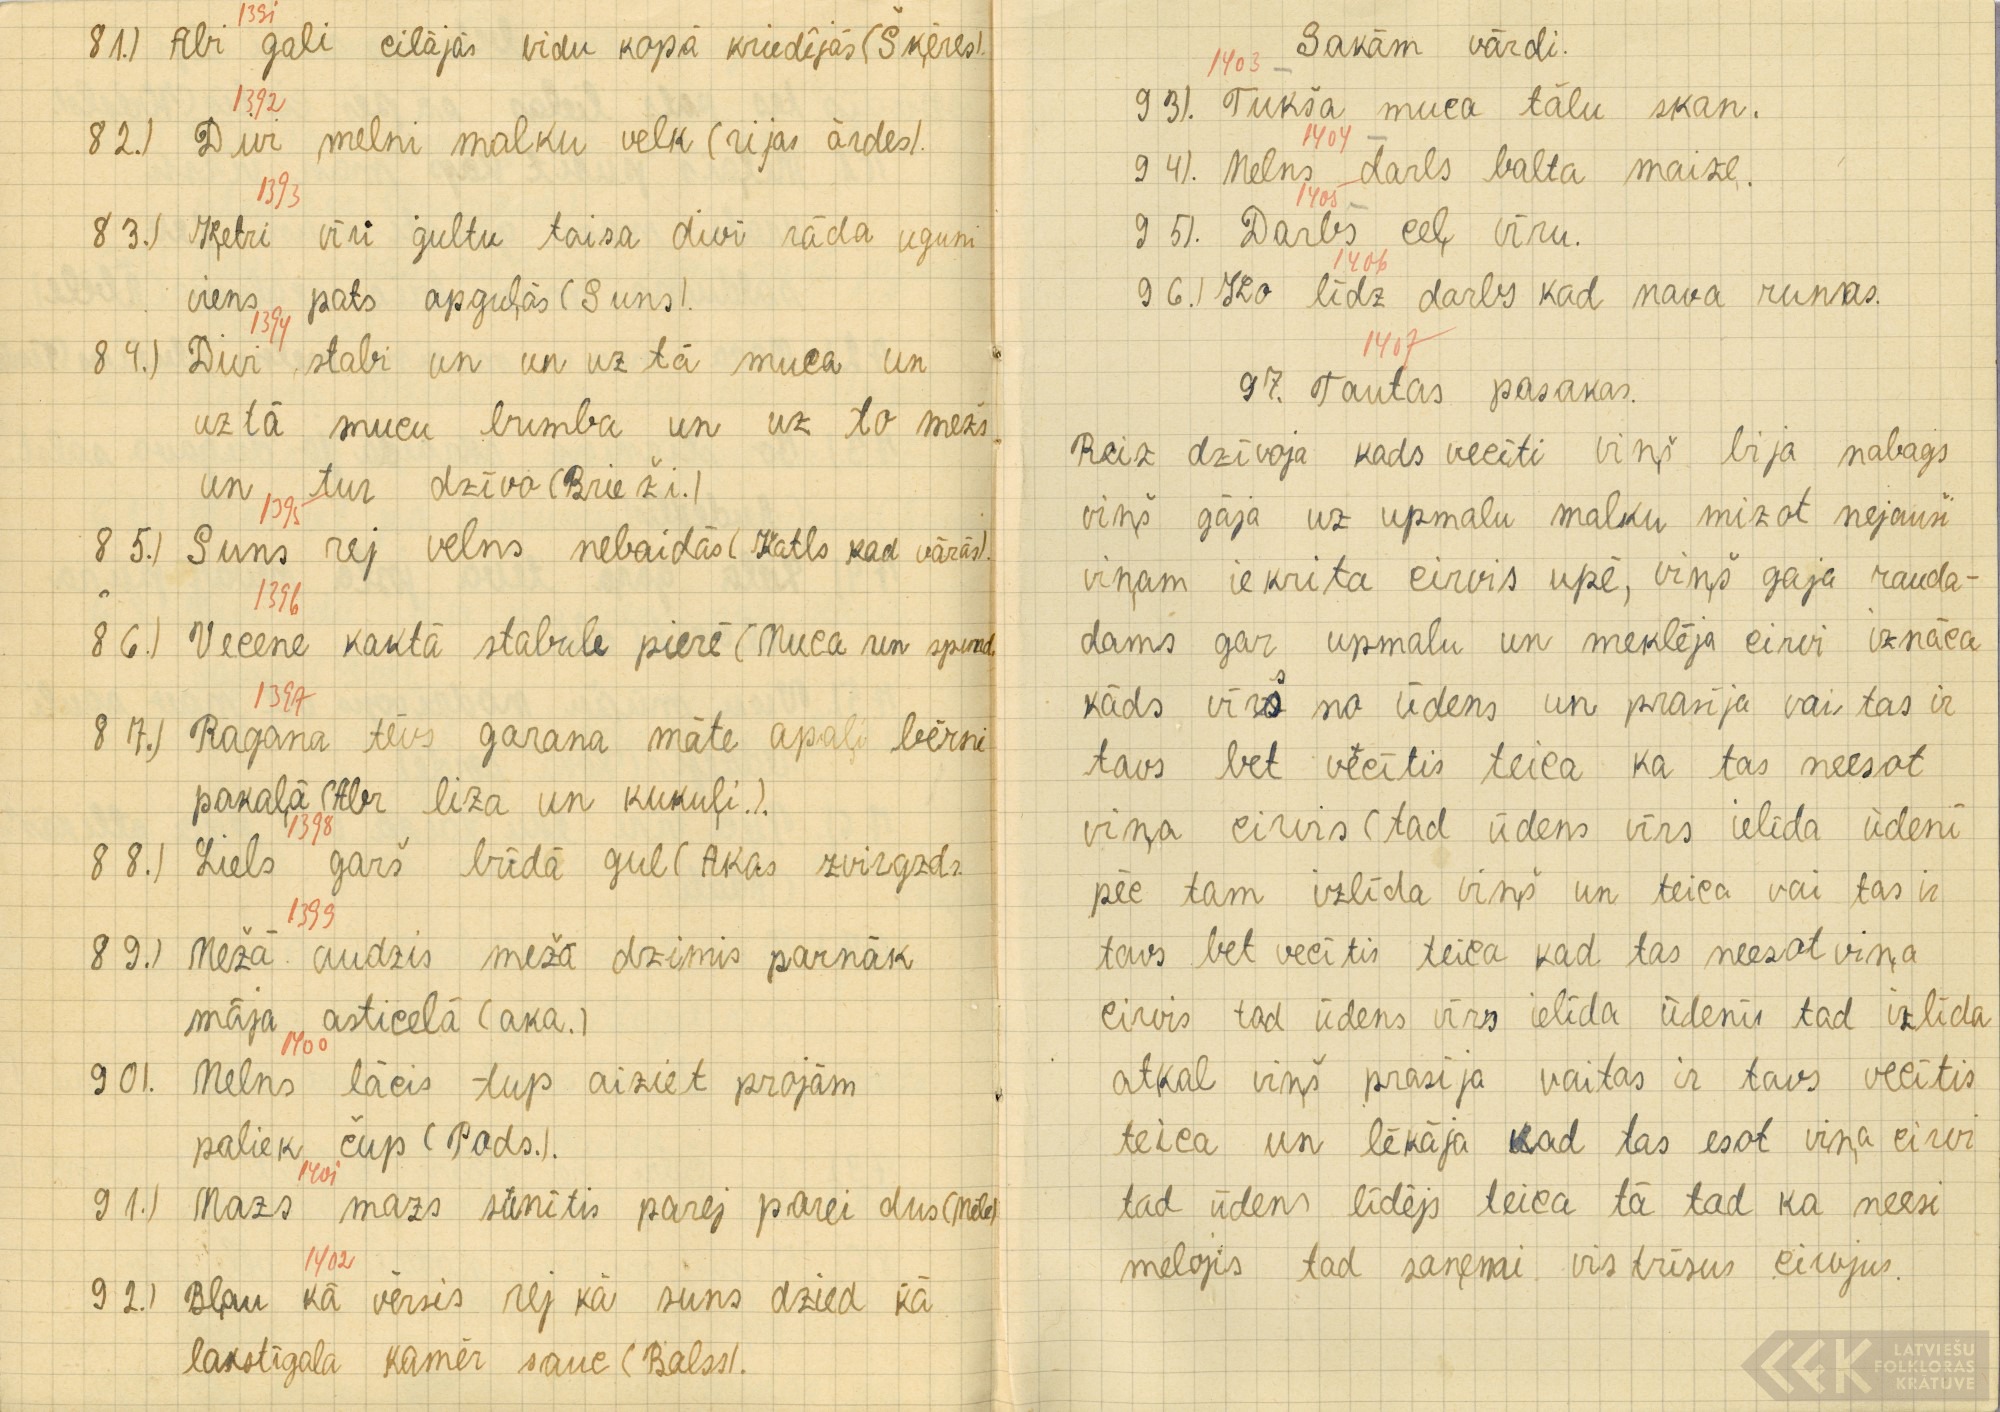 1391
81.) Abi gali cilājās vidu kopā kriedējās (Šķēres).
1392
82.) Divi melni malku velk (rijas ārdes).
1393
83.) Ķetri vīri gultu taisa divi rāda uguni
viens pats apguļās (Suns).
1394
84.) Divi stabi un un uz tā muca un
uz tā mucu bumba un uz to mežs
un tur dzīvo (Brieži.)
1395
85.) Suns rej velns nebaidās (Katls kad vārās).
1396
86.) Vecene kaktā stabule pierē (Muca un spund.
1397
87.) Ragana tēvs garana māte apaļi bērni
pakaļā (Abr liza un kukuļi.).
1398
88.) Liels garš būdā guļ (Akas zvirgzds
1399
89.) Mežā audzis mežā dzimis parnāk
māja asticelā (aka.)
1400
90). Melns lācis tup aiziet projām
paliek čup (Pods.).
1401
91.) Mazs mazs sunītis parej parei dus (Mēle)
1402
92.) Bļau kā vērsis rej kā suns dzied kā
lakstīgala kamēr sauc (Balss).
Sakām vārdi.
1403
93). Tukša muca tālu skan.
1404
94). Melns darbs balta maize.
1405
95). Darbs ceļ vīru.
1406
96.) Ko līdz darbs kad nava runas.
1407
97. Tautas pasakas.
Reiz dzīvoja kads vecīti viņš bija nabags
viņš gāja uz upmalu malku mizot nejauši
viņam iekrita cirvis upē, viņš gaja rauda-
dams gar upmalu un meklēja cirvi iznāca
kāds vīrs no ūdens un prasīja vai tas ir
tavs bet vecītis teica ka tas neesot
viņa cirvis (tad ūdens vīrs ielīda ūdenī
pēc tam izlīda viņš un teica vai tas ir
tavs bet vecītis teica kad tas neesot viņa
cirvis tad ūdens vīrs ielīda ūdenīs tad izlīda
atkal viņš prasīja vaitas ir tavs vecītis
teica un lēkāja kad tas esot viņa cirvi
tad ūdens līdējs teica tā tad ka neesi
melojis tad saņemi vis trīsus cirvjus.
LATVIEŠU
FOLKLORAS
KRĀTUVE